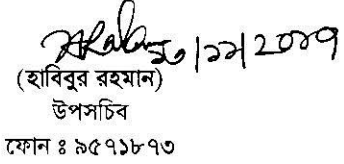 ৩০/১২/২০১৭
(হাবিবুর রহমান)
উপসচিব
ফোন ঃ ৯৫৭১৮৭৩